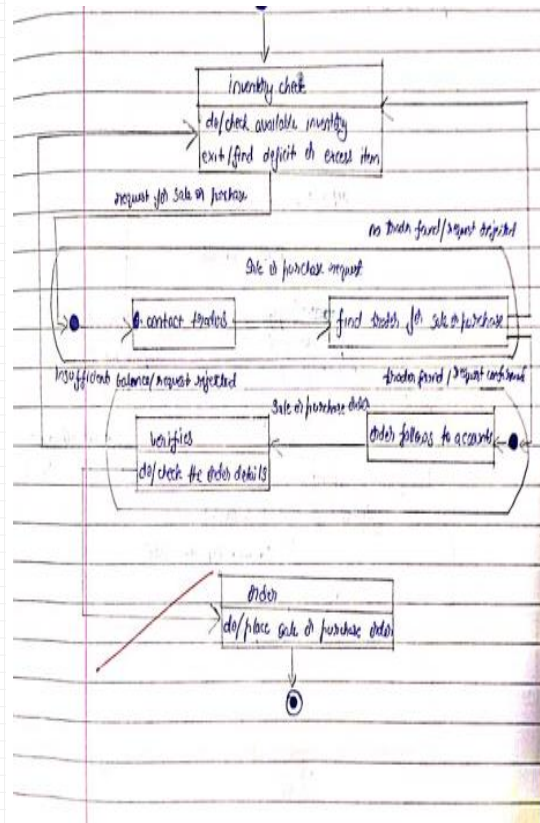 inventory check
do/check available inventory
exit/find deficit or excess item
request for sale or purchase
no trader found/request rejected
Sale or purchase request
contact traders
find trader for sale or purchase
Insufficient balance/request rejected
trader found/request confirmed
Sale or purchase order
verifies
do/check the order details
order follows to accounts
order
do/place sale or purchase order